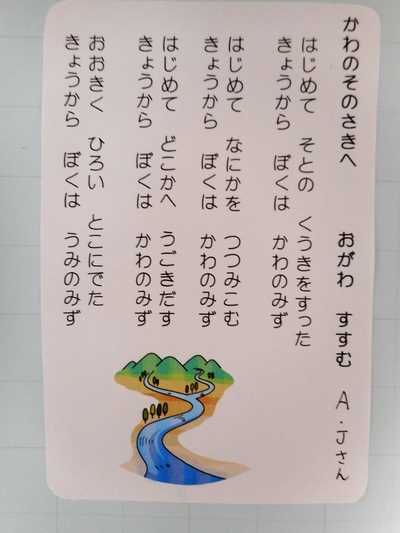 かわのそのさきへ　おがわ　すすむ　A・Jさん
はじめて　そとの　くうきをすった
きょうから　ぼくは　かわのみず
はじめて　なにかを　つつみこむ
きょうから　ぼくは　かわのみず
はじめて　どこかへ　うごきだす
きょうから　ぼくは　かわのみず
おおきく　ひろい　とこにでた
きょうから　ぼくは　うみのみず